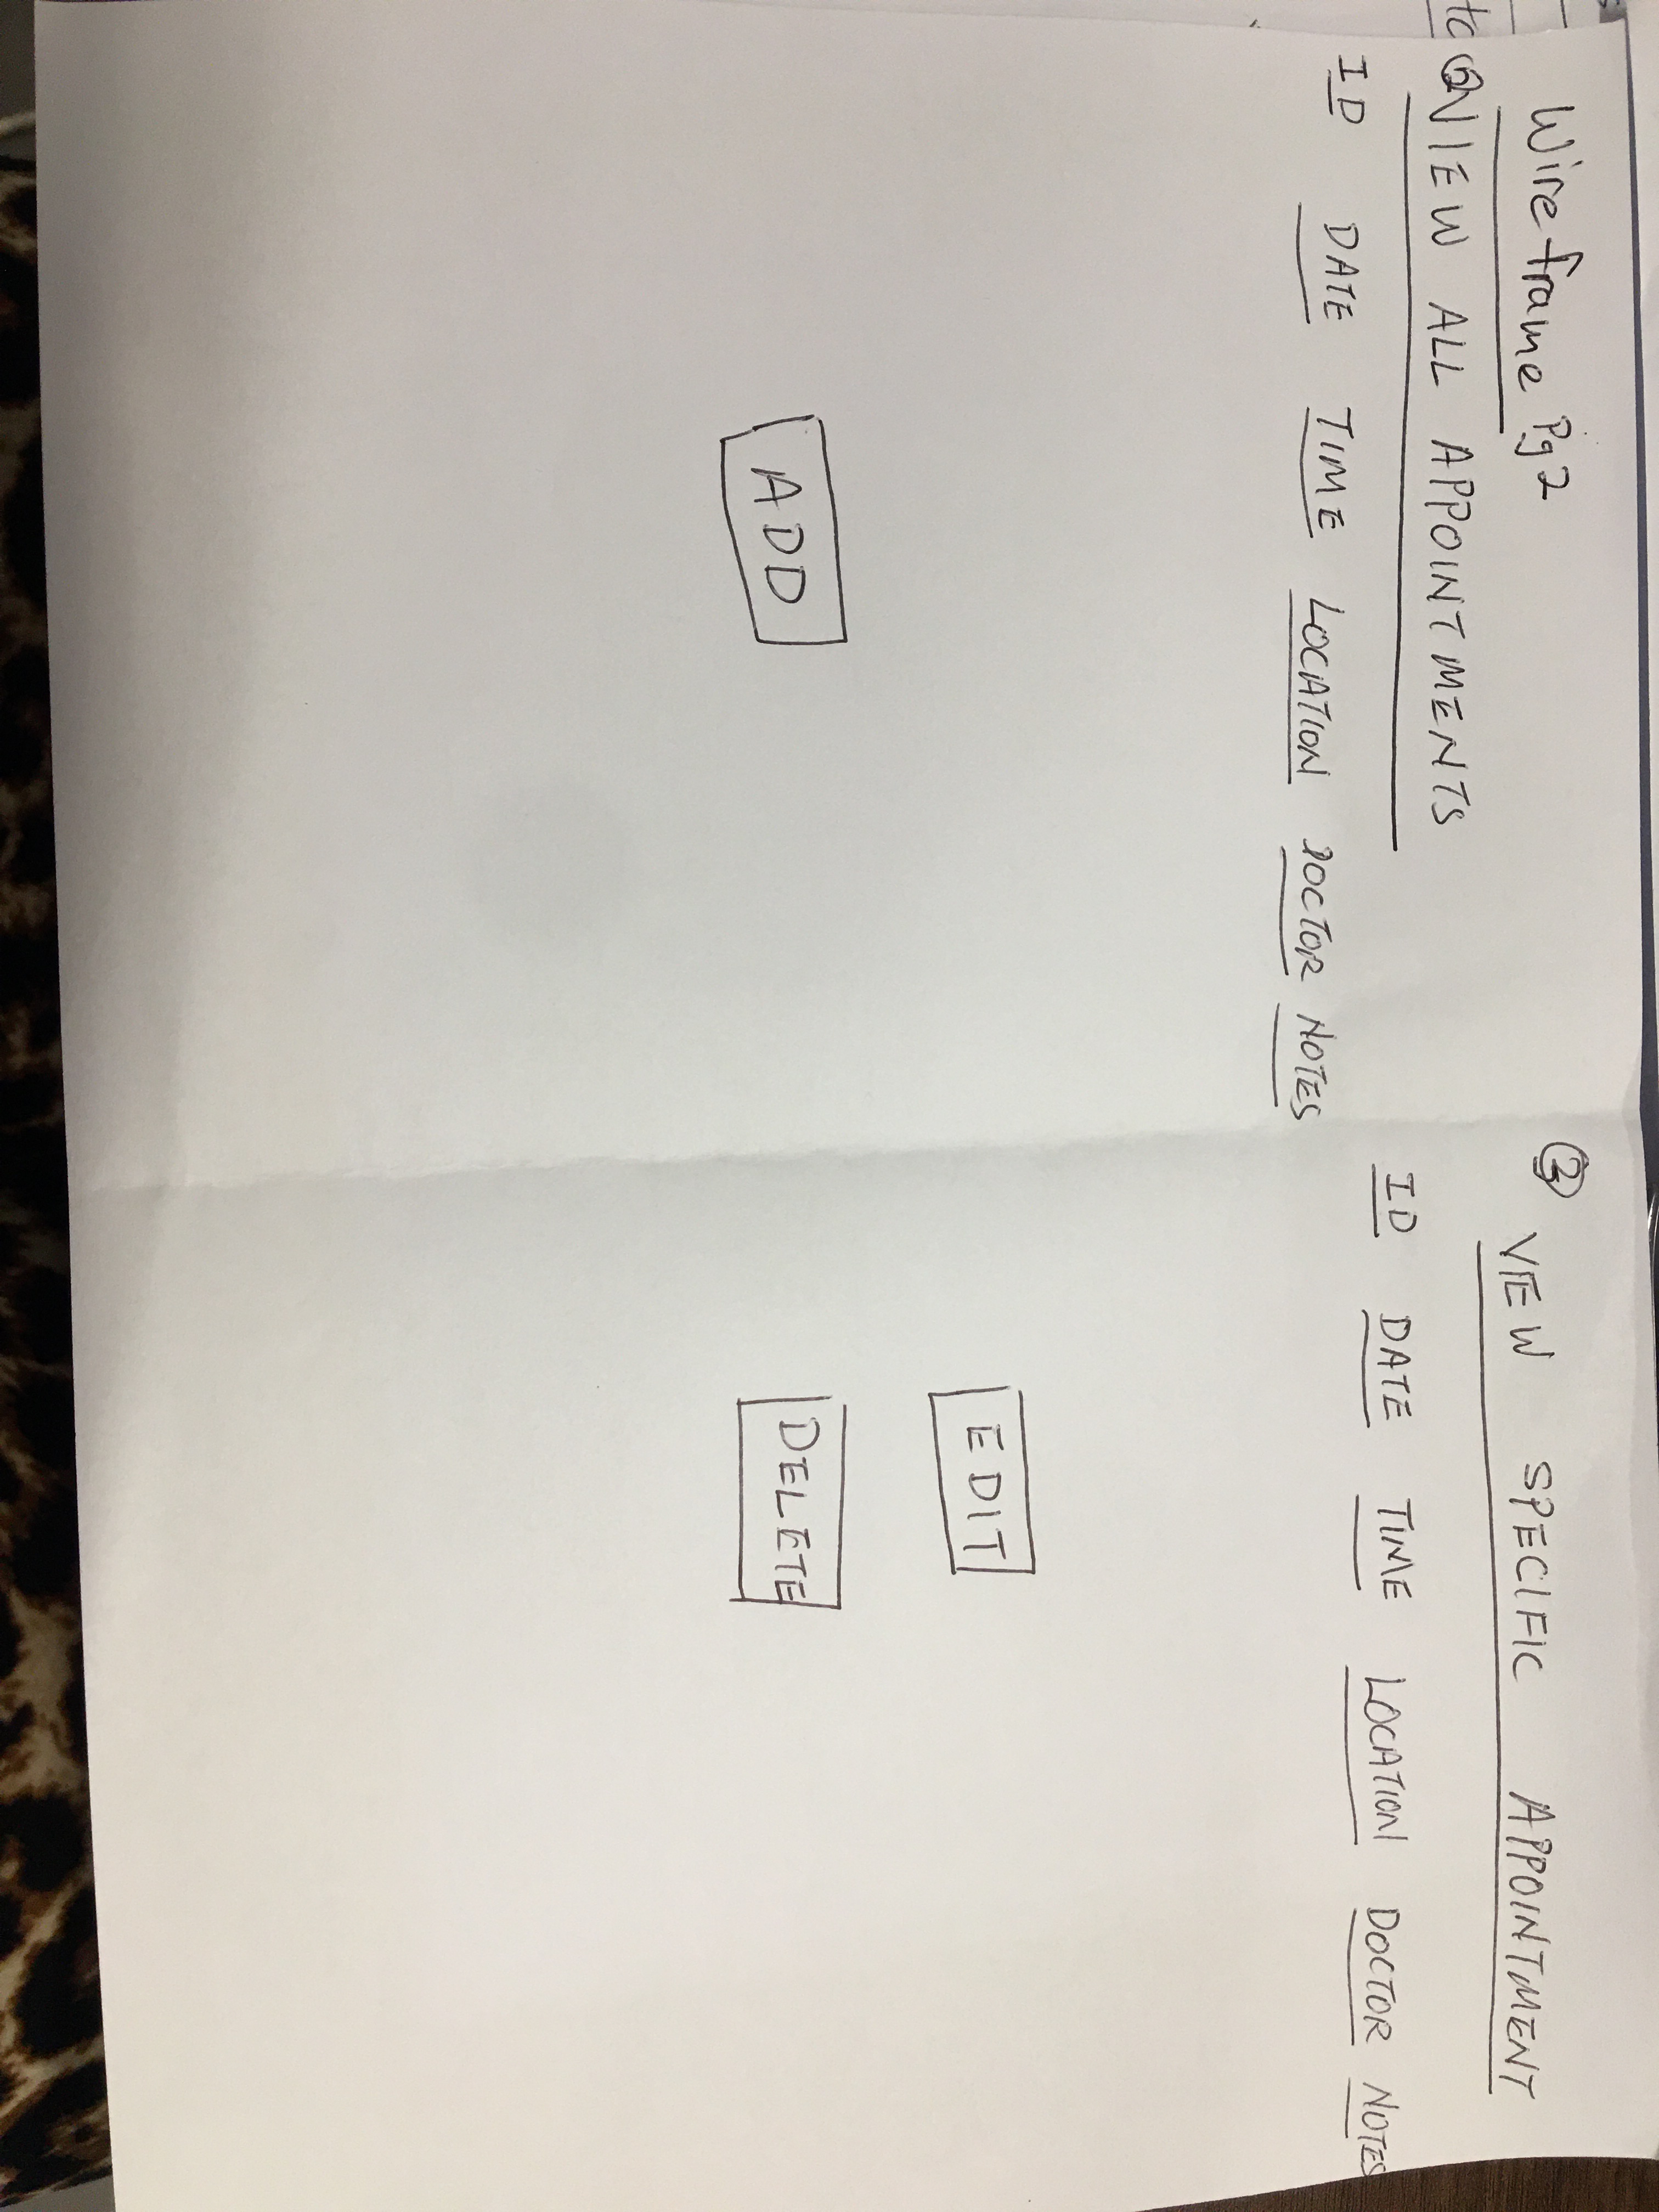 Wireframe Pg 2
② VIEW ALL APPOINTMENTS
ID DATE TIME LOCATION DOCTOR NOTES
ADD
VIEW SPECIFIC APPOINTMENT
ID DATE TIME LOCATION DOCTOR NOTES
EDIT
DELETE